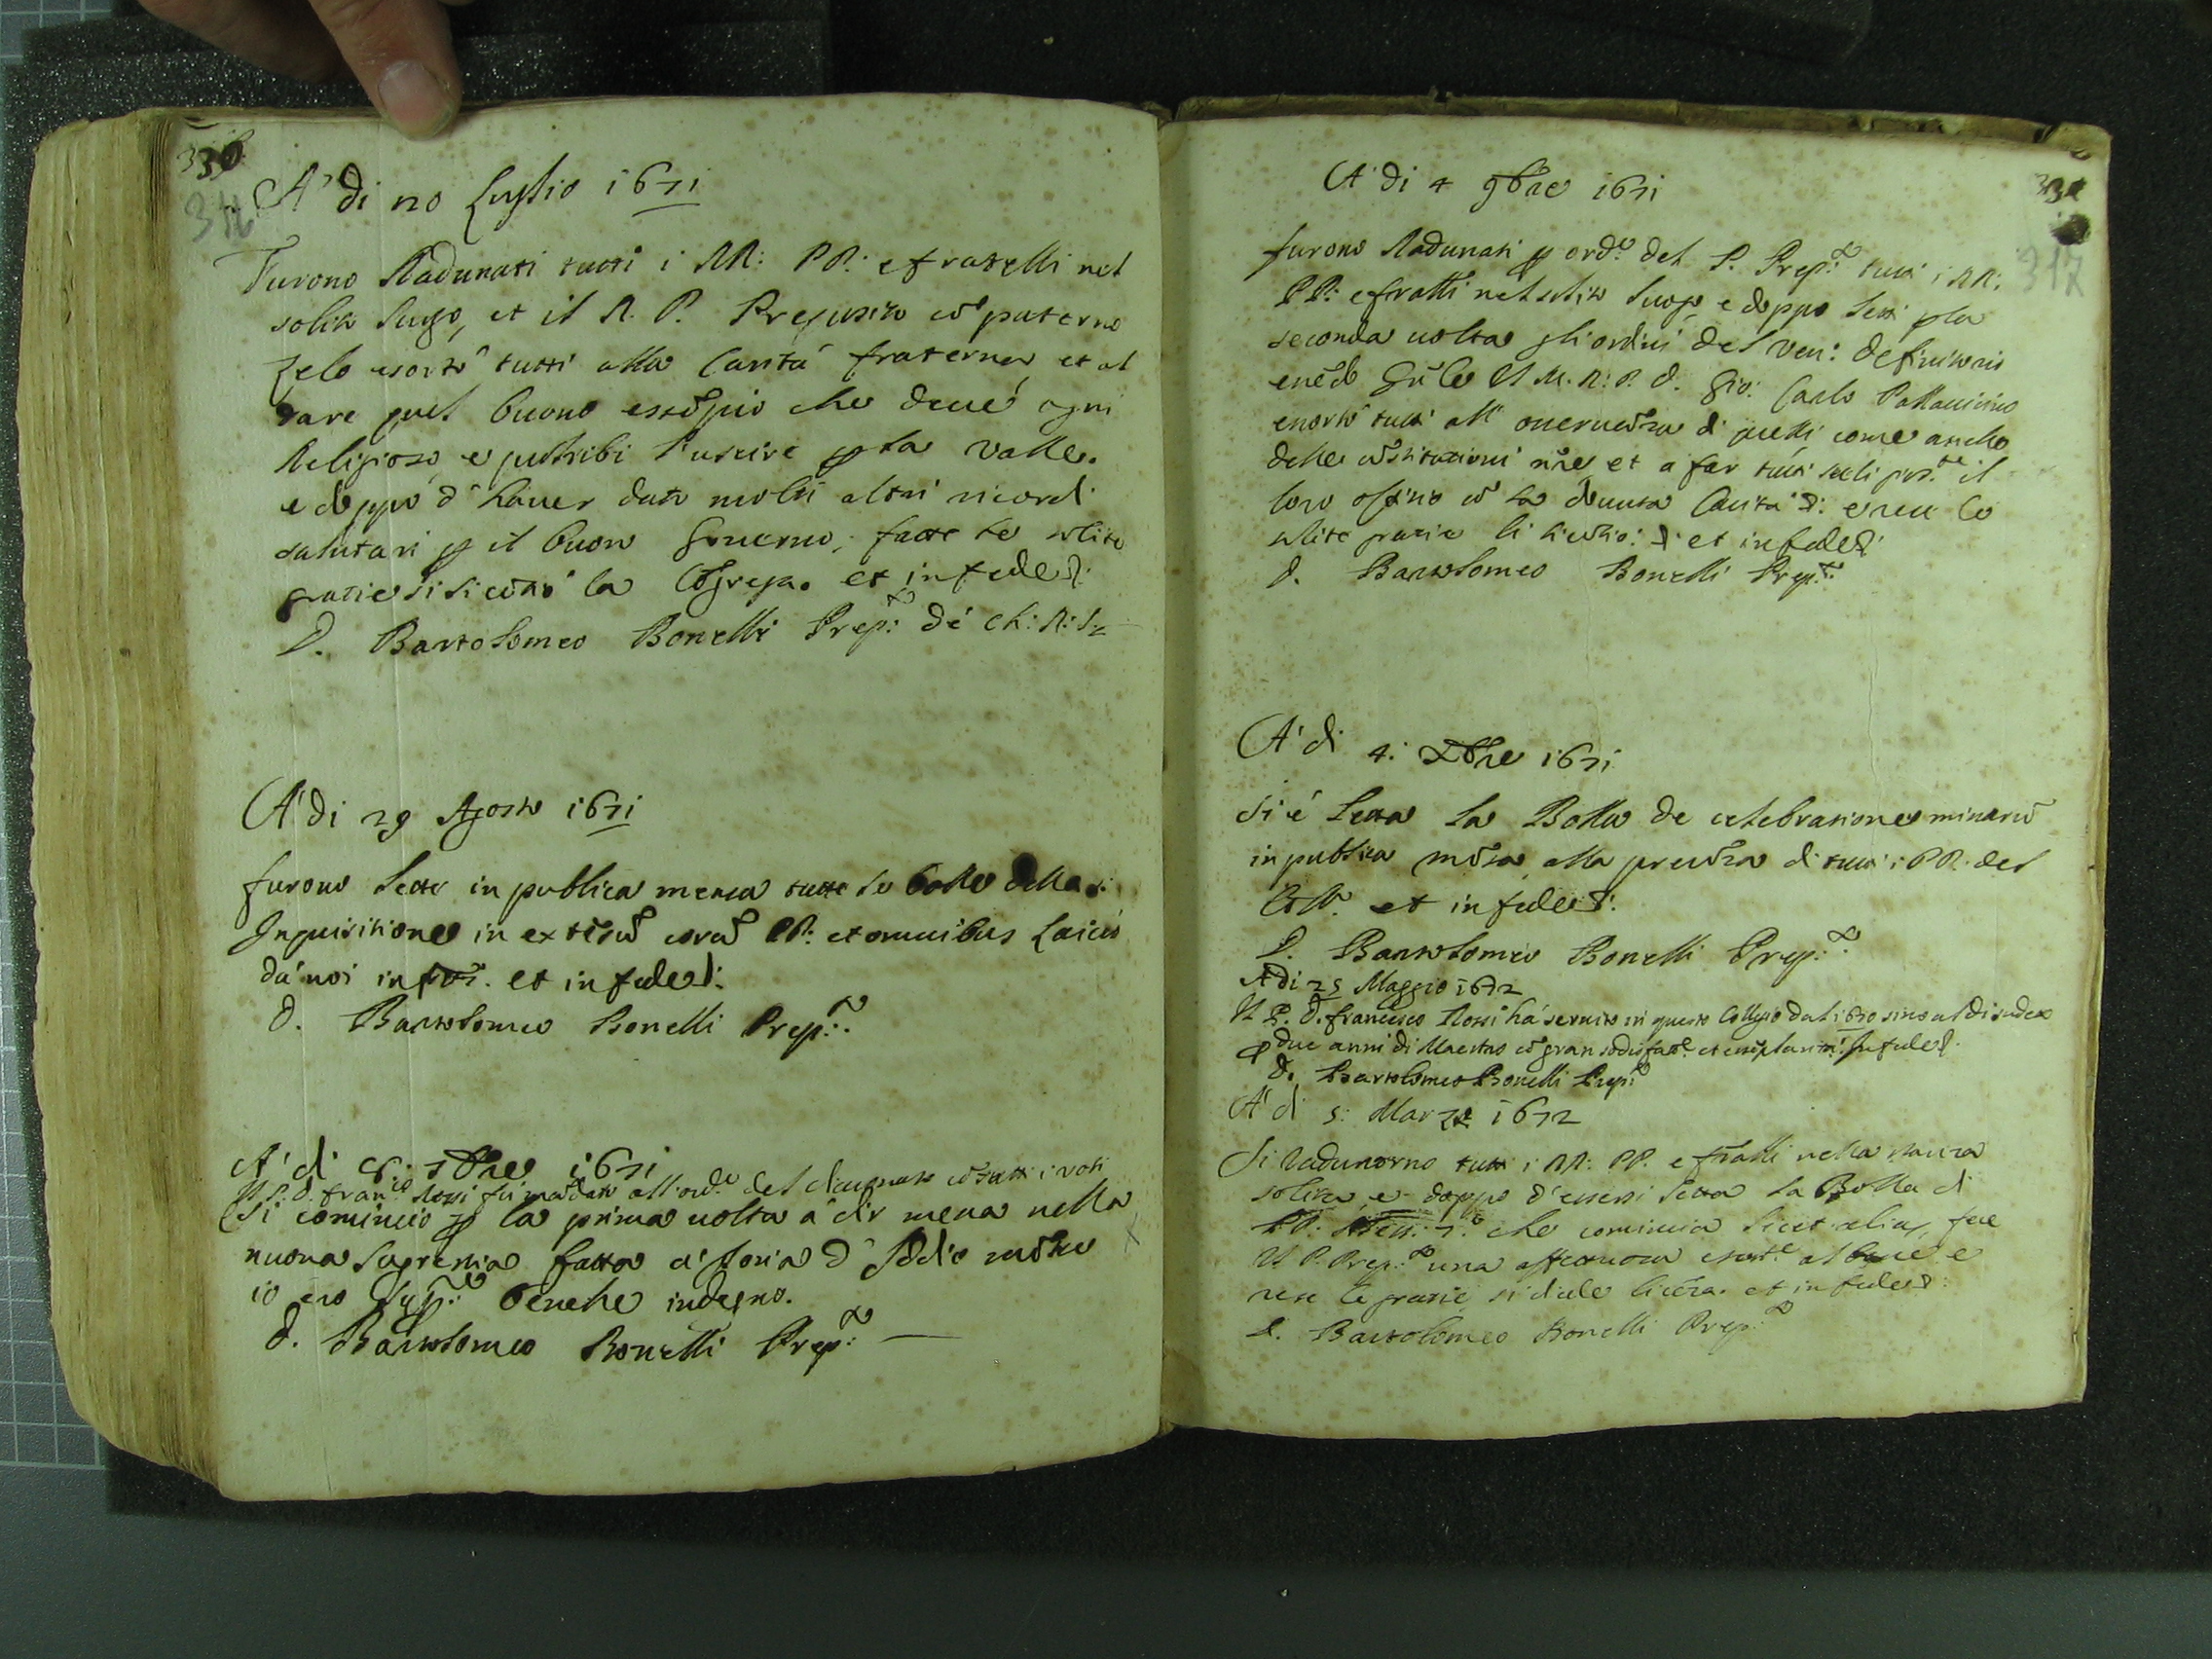 330
A' di 20 Luglio 1671
Furono Radunati tutti i RR: PP: e fratelli nel
solito luogo, et il R. P. Preposito cõ paterno
zelo esortò tutti alla Carità fraterna, et al
dare quel buono essẽpio che deve ogni
Religioso e
e doppo d'haver dato molti altri ricordi
salutari p il buon Governo, fatte le solite
gratie si licẽtiò la Cõgrega. et in fede d:
D. Bartolomeo Bonelli Prep:to de Ch: R: S:
A' di 29 Agosto 1671
furono lette in publica mensa tutte le bolle della s:
Inquisitione in extẽsũ corã PP: et omnibus Laicis
da noi et in fede d:
D. Bartolomeo Bonelli Prep:to
A' di 8: 7bre 1671
Il P: D. Franc.o Rossi fù mãdato all'ord.e del cõ tutti i voti
Si cominciò p la prima volta a dir messa nella
nuova Sagrestia fatta a gloria d'Iddio mẽtre
io ero benche indegno.
D. Bartolomeo Bonelli Prep:to
331
317
A' di 4 9bre 1671
furono Radunati p ord.e del P. Prep:to tutti i RR:
PP: e fratlli nel solito luogo e doppo letti p la
seconda volta gli ordini del Ven: Definitorio
enẽdo Gñle Il M. R. P. D. Gio: Carlo Pallavicino
esortò tutti all' osservãza di quelli come anche
delle cõstitutioni nre et a far tutti il
loro offitio cõ la dovuta Carità d: e rese le
solite gratie li licẽtiò: d: et in fede d:
D. Bartolomeo Bonelli Prep:to
A' di 4: Xbre 1671
Si è letta la Bolla de celebratione missarũ
in publica mẽsa alla presẽza di tutti i PP. del
Coll.o et in fede d:
D. Bartolomeo Bonelli Prep:to
A di 25 Maggio 1672
Il P. D. Francesco Rossi hà servito in questo Collegio dal 1670 sino al di sudeto
p due anni di Maestro cõ gran sodisfatt.e et essẽplarità. In fede d:
D. Bartolomeo Bonelli Prep:to
A' di 5: Marzo 1672
Si radunorno tutti i RR: PP. e fratlli nella stanza
solita, e doppo d'essersi letta la Bolla di
che comincia Licet alias, fece
Il P. Prep:to una affettuosa esort.e al bene e
rese le gratie si diede licẽza. et in fede d:
D. Bartolomeo Bonelli Prep:to